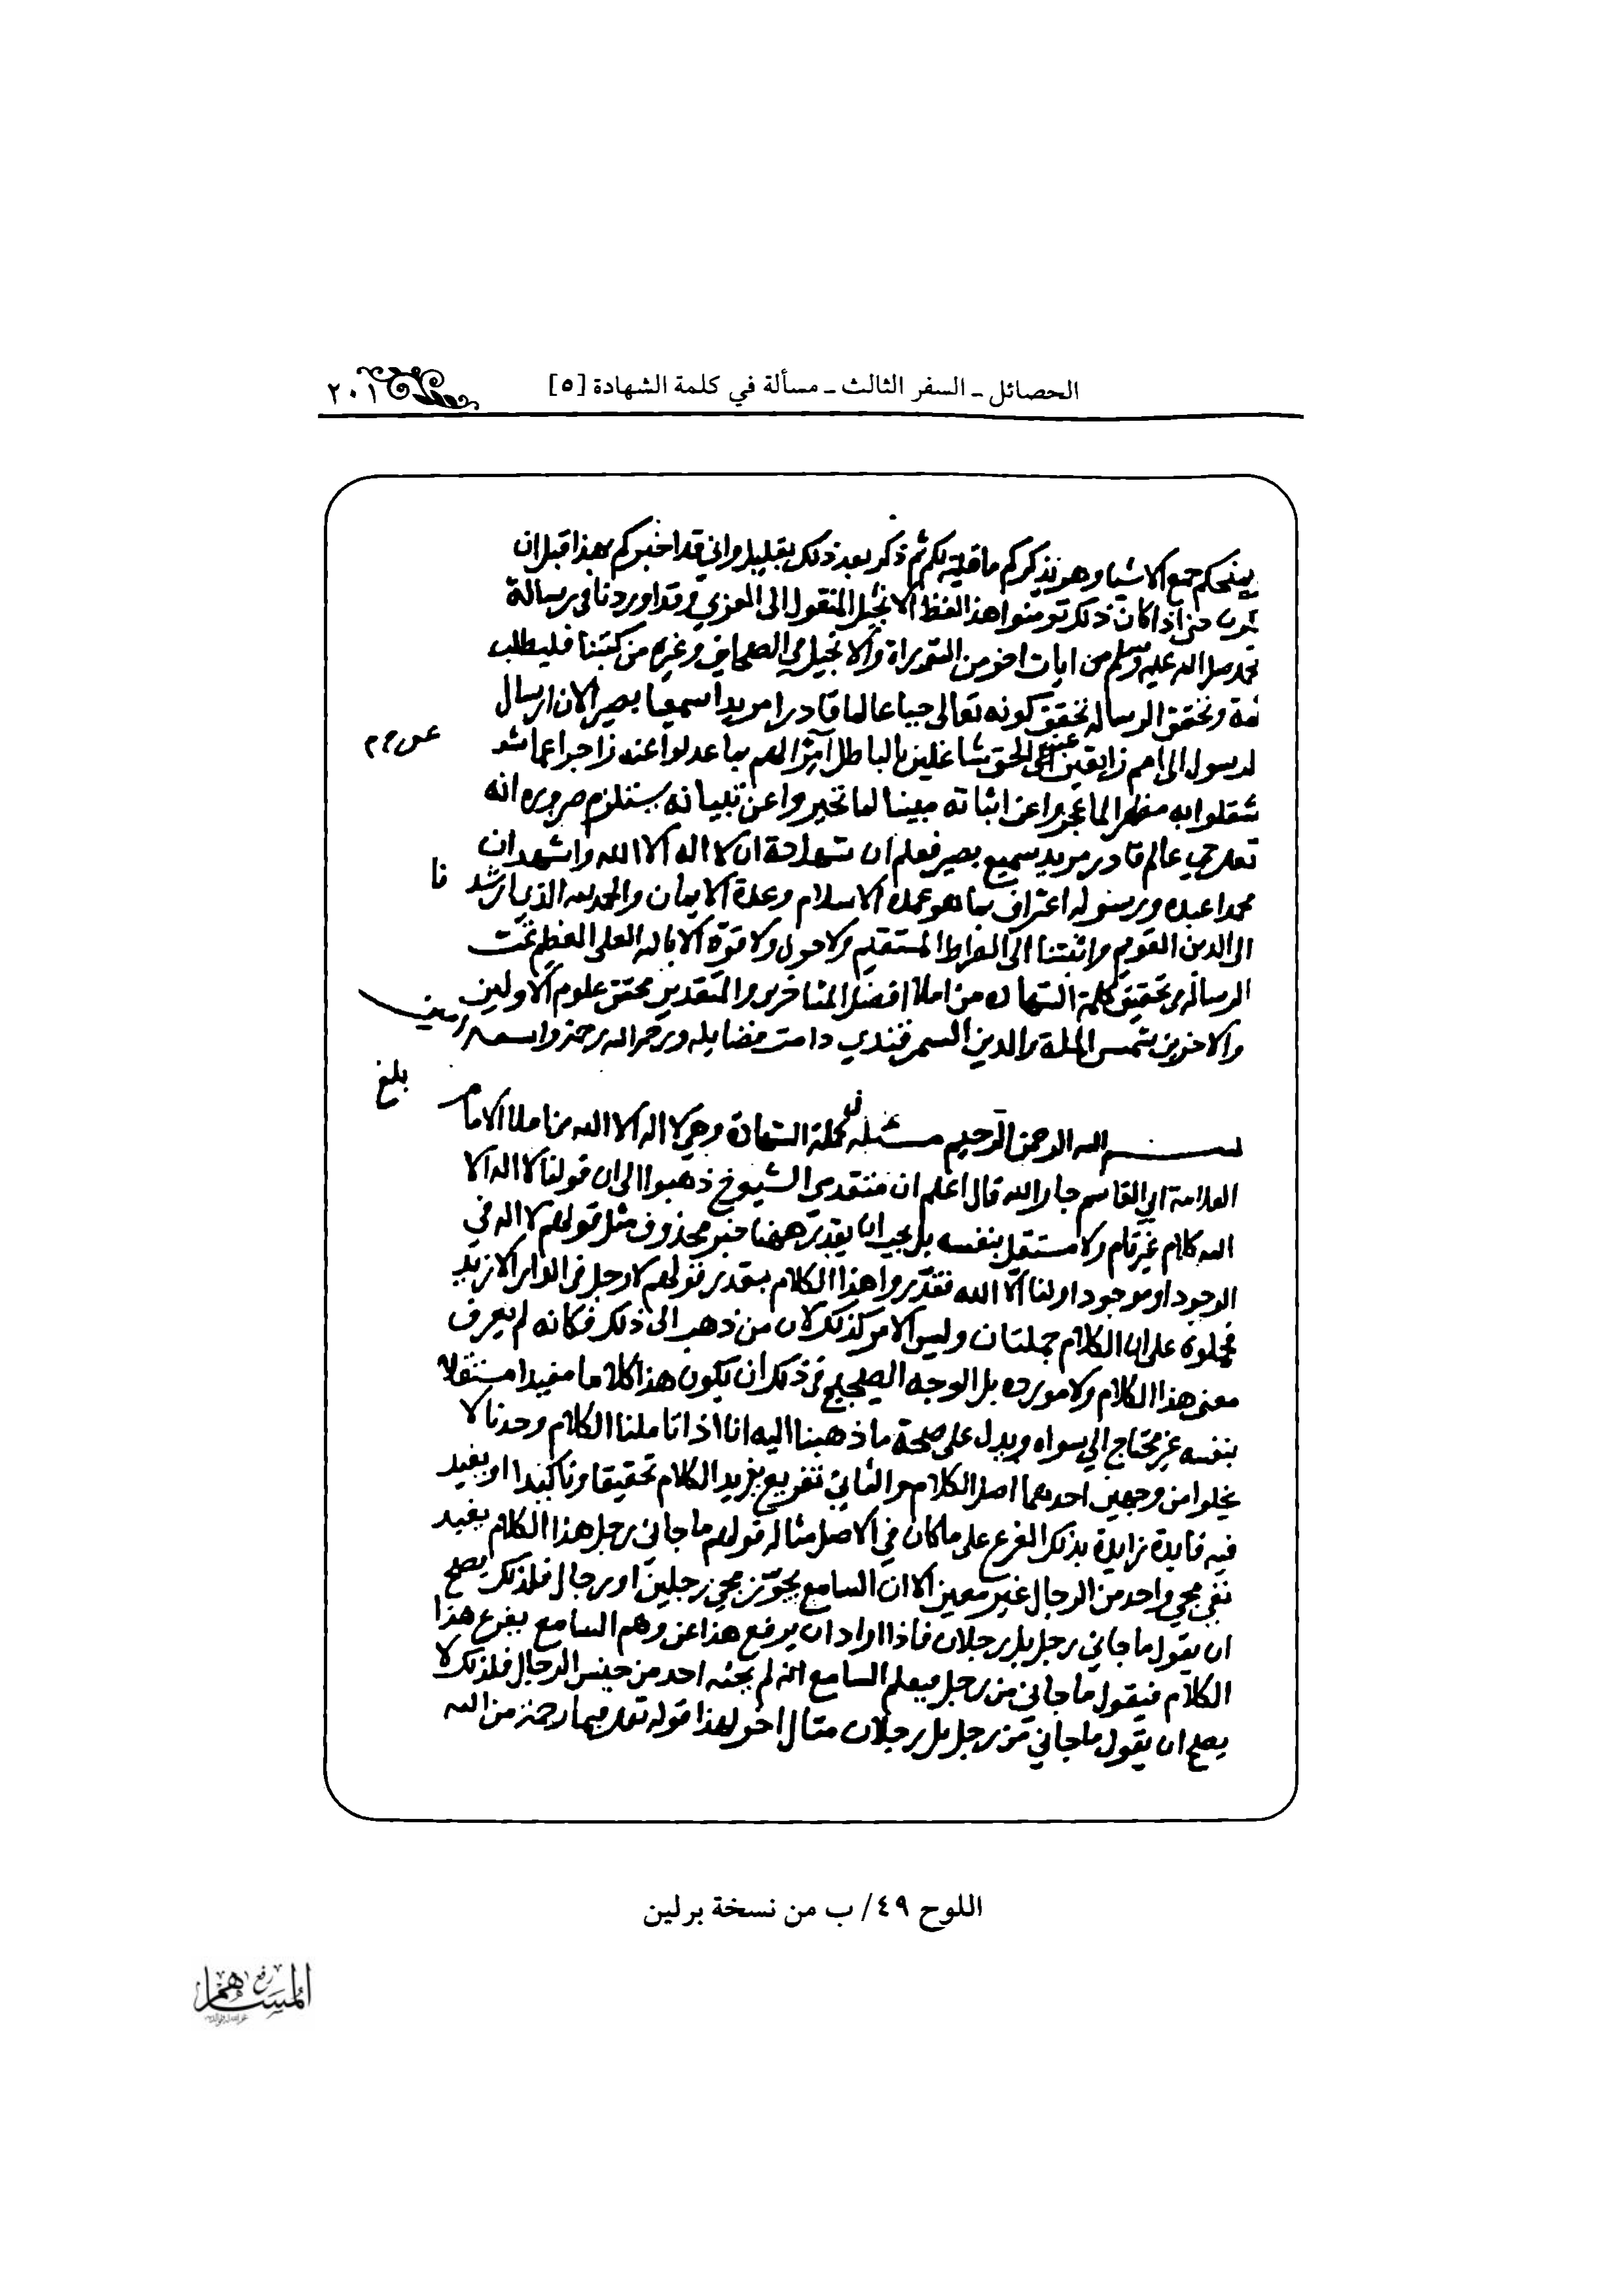 الحصائل ـ السفر الثالث ـ مسألة في كلمة الشهادة [٥] ٢٠١
يمنحكم جميع الاشيا وهو يذكركم ما قلته لكم ثم ذكر بعد ذلك بقليل واني قد اخبركم بهذا قبل ان
حتى اذا كان ذلك تومنوا هذا لفظ الانجيل المنقول الى العربي وقد اوردنا في رسالة
محمد صلى الله عليه وسلم من ايات اخر من التوراة والانجيل والصحايف وغيره من كتبنا فليطلب
ثمة وتحقق الرسالة تحقق كونه تعالى حيا عالما قادرا مريدا سميعا بصيرا لان ارسال
الرسول الى امم زايغين عن الحق شاغلين بالباطل آمرا لهم بما عدلوا عنه زاجرا عما
شغلوا به مظهرا لما عجزوا عن اثباته مبينا لما تحيروا عن تبيانه يستلزم ضرورة انه
تعالى حي عالم قادر مريد سميع بصير فعلم ان شهادة ان لا اله الا الله واشهد ان
محمدا عبده ورسوله اعتراف بما هو عمدة الاسلام وعدة الايمان والحمد لله الذي ارشدنا
الى الدين القويم واثبتنا الى الصراط المستقيم ولا حول ولا قوة الا بالله العلي العظيم تمت
الرسالة في تحقيق كلمة الشهادة من املا افضل المتاخرين والمتقدمين محقق علوم الاولين
والاخرين شمس الملة والدين السمرقندي دامت فضايله ورحم الله رحمة واسعة
بلغ
بسم الله الرحمن الرحيم مسئلة في كلمة الشهادة وهي لا اله الا الله من املا الامام
العلامة ابي القاسم جار الله قال اعلم ان متقدمي الشيوخ ذهبوا الى ان قولنا لا اله الا
الله كلام غير تام ولا مستقل بنفسه بل يجب ان يقدر ههنا خبر محذوف مثل قولهم لا اله في
الوجود او موجود او لنا الا الله فقدروا هذا الكلام بتقدير قولهم لا رجل في الدار الا زيد
فجعلوه على ان الكلام جملتان وليس الامر كذلك لان من ذهب الى ذلك فكانه لم يعرف
معنى هذا الكلام ولا مورده بل الوجه الصحيح في ذلك ان يكون هذا كلاما مفيدا مستقلا
بنفسه غير محتاج الى سواه ويدل على صحة ما ذهبنا اليه انا اذا تاملنا الكلام وجدناه لا
يخلوا من وجهين احدهما اصل الكلام والثاني تفريع يزيد الكلام تحقيقا وتاكيدا او يفيد
فيه فايدة زايدة بذلك الفرع على ما كان في الاصل مثاله قولهم ما جاني رجل هذا الكلام يفيد
نفي مجي واحد من الرجال غير معين الا ان السامع يجوز مجي رجلين او رجال فلذلك يصلح
ان يقول ما جاني رجل بل رجلان فاذا اراد ان يرفع هذا عن وهم السامع يفرع هذا
الكلام فيقول ما جاني من رجل فيعلم السامع انه لم يجئه احد من جنس الرجال فلذلك لا
يصلح ان يقول ما جاني من رجل بل رجلان مثال اخر لهذا قوله تعالى فبما رحمة من الله
اللوح ٤٩/ ب من نسخة برلين